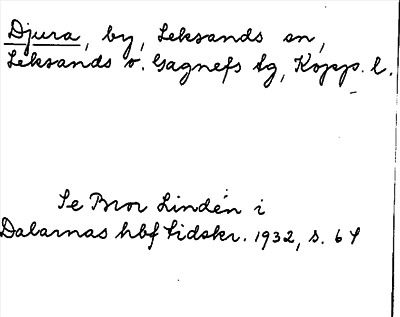 Djura, by, Leksands sn,
Leksands o. Gagnefs tg, Kopp. l.
Se Bror Lindén i
Dalarnas hbf tidskr. 1932, s. 64